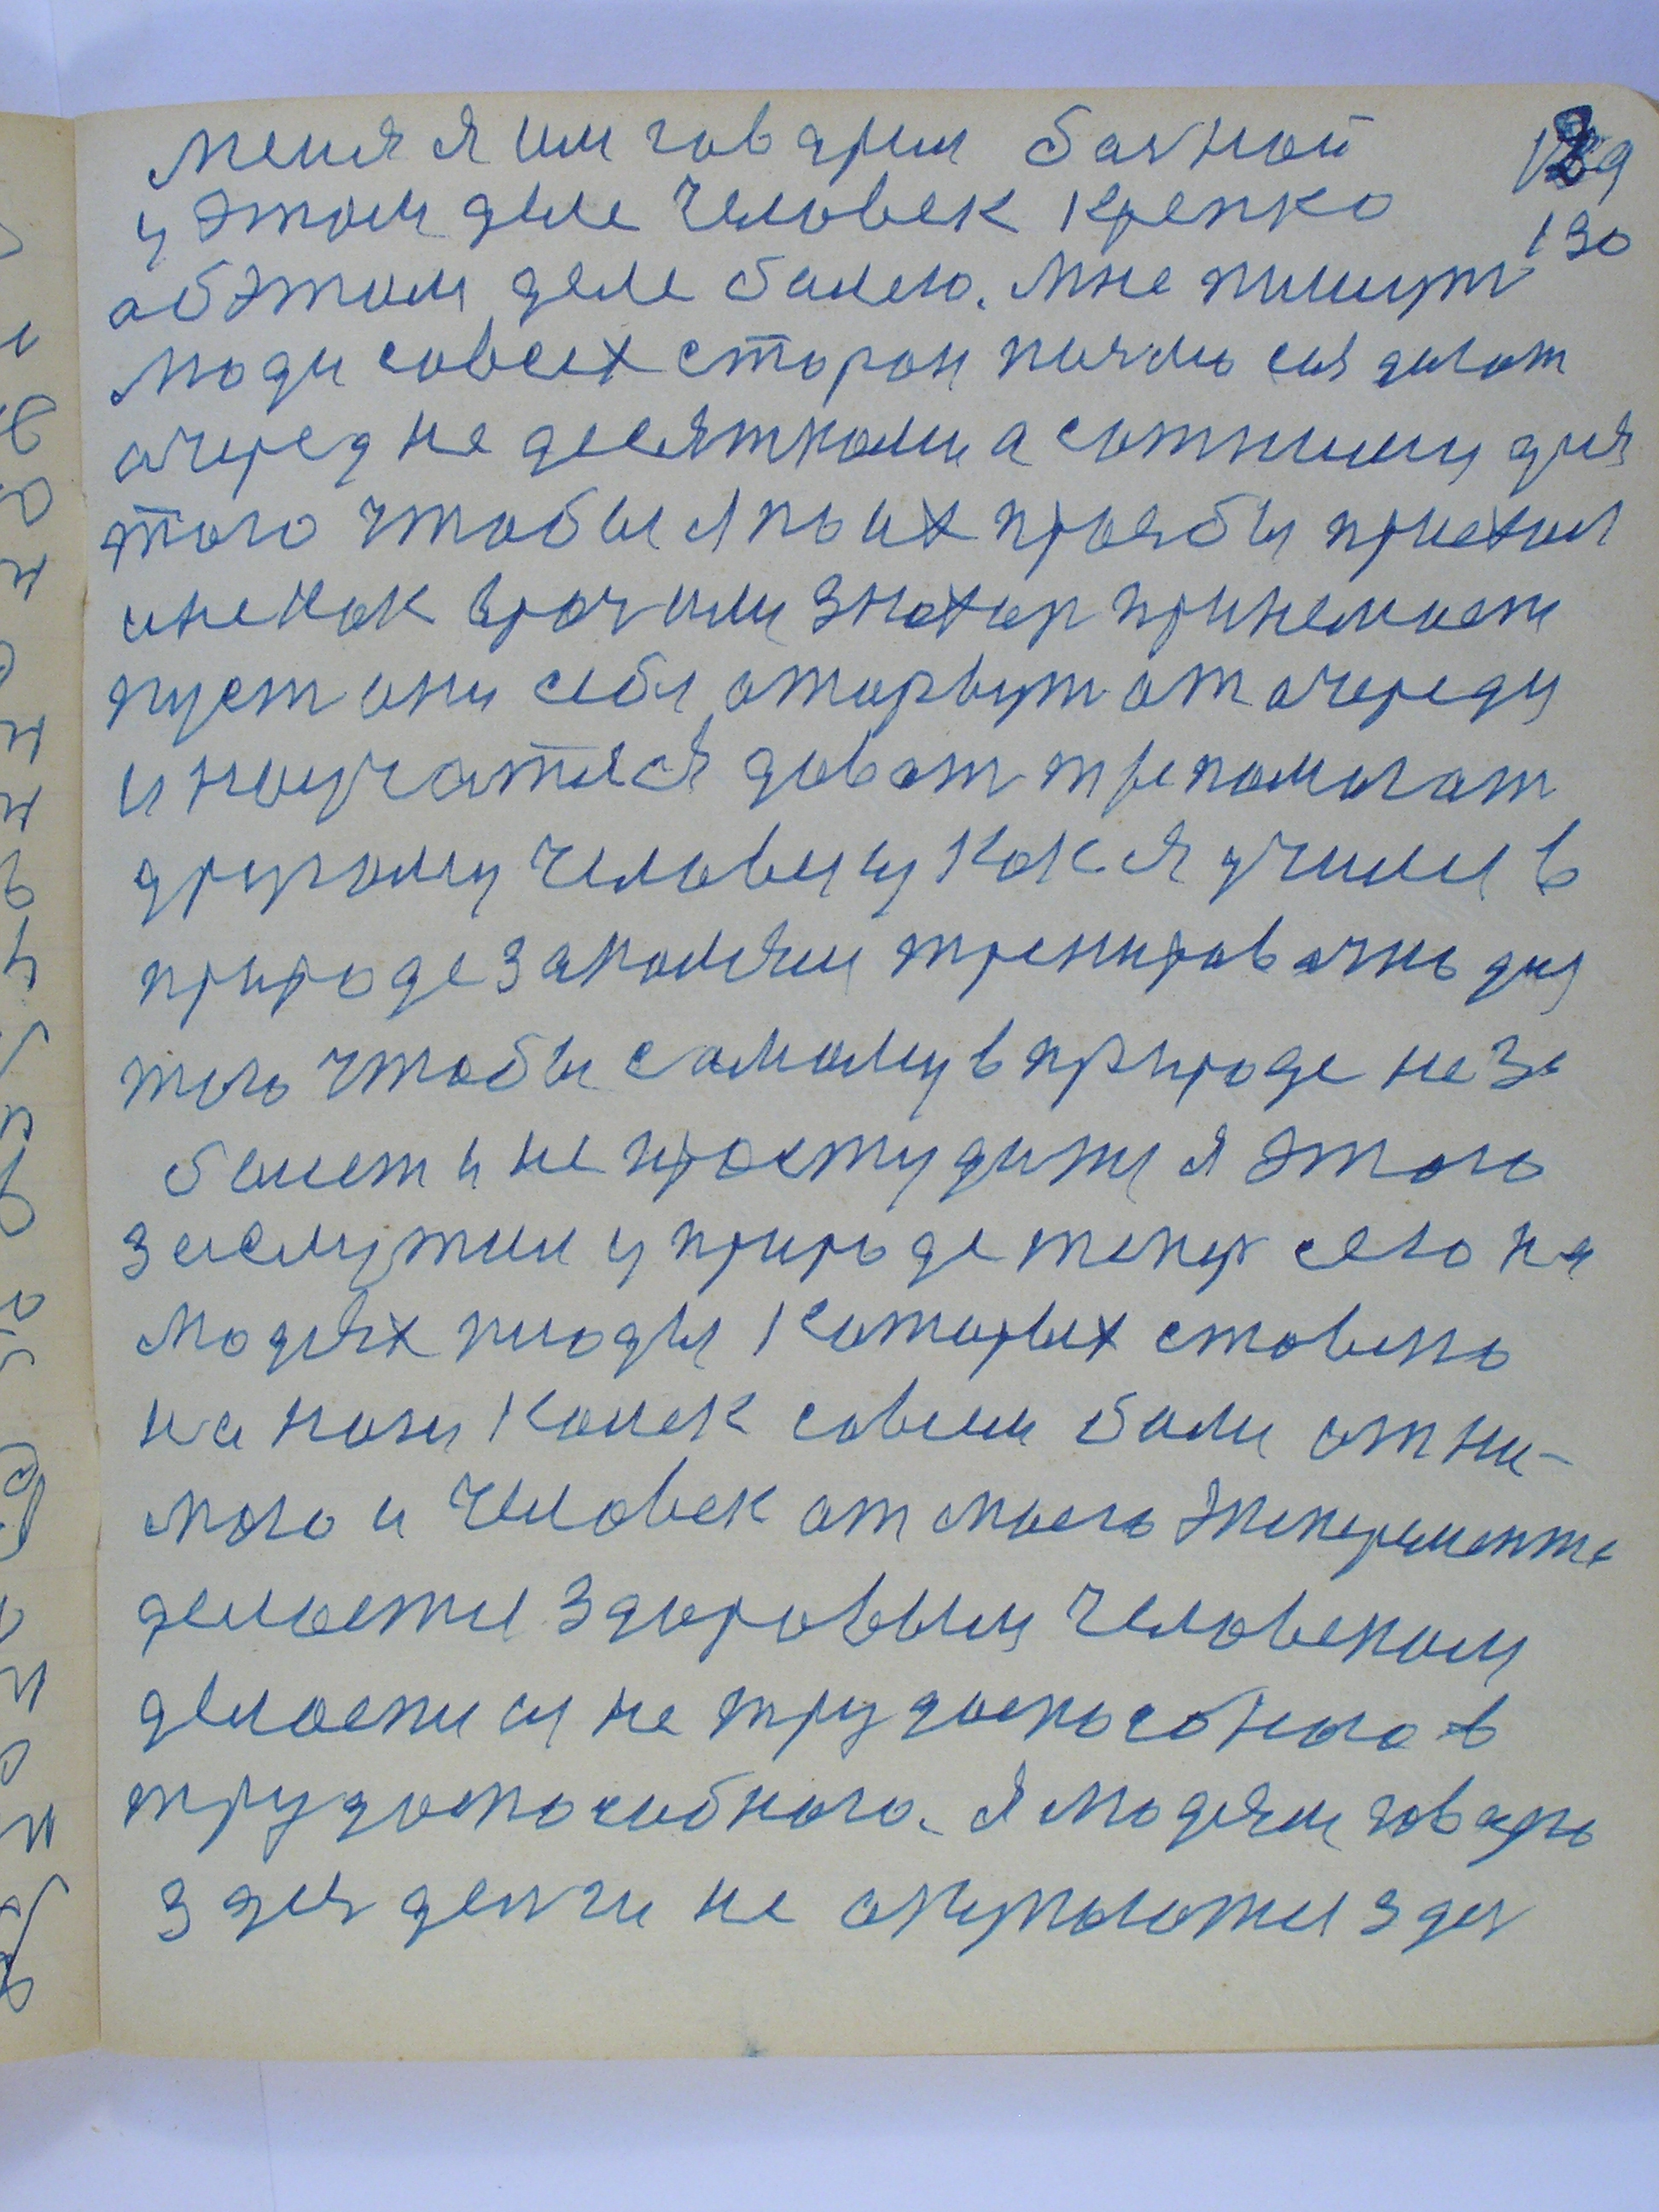 меня я им говарил бачной
у этом деле человек крепко
обэтом деле балею. мне пишут
люди совсех сторон писмо созделат
очеред не десятками а сотними для
того чтобы я по их прозбы приехал
ине как врач или знахар принемает
пуст они себя оторвут от очереди
и научатися доват и препомогат
другому человеку как я учили в
природе закалям тренировачно для
того чтобы самому в природе не за
балет и не простудити я этого
заслужил у природе тепер сего на
людях плоды которых ставело
на ноги калек совсем бали отни-
мало и человек от моего эксперемента
делается здоровым человеком
делаети из не трудоспособного в
трудоспособного. я людям говарю
здес денги не окупаютися здес
129
130